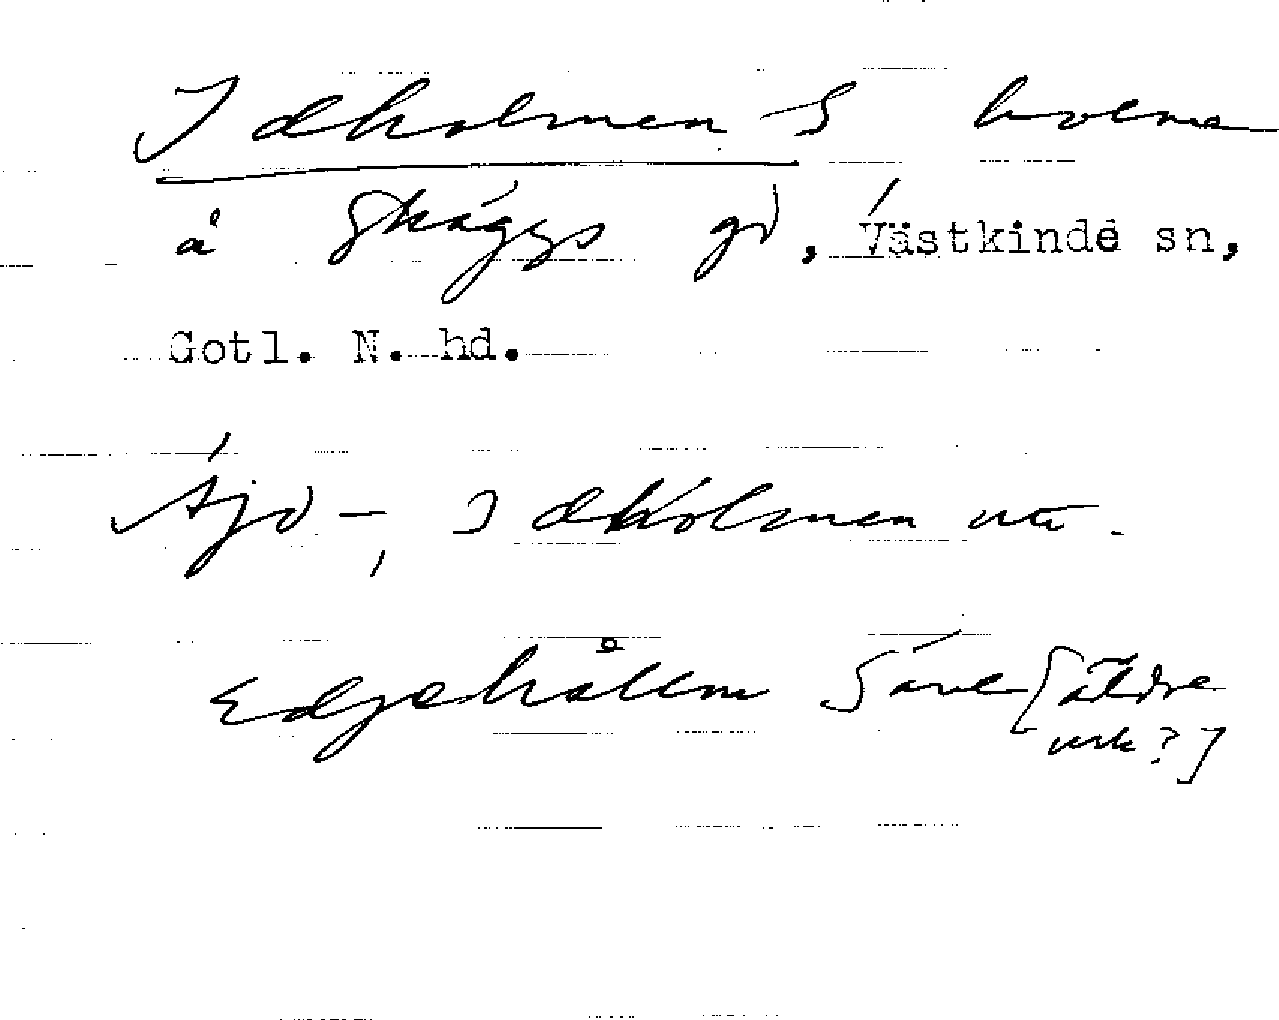 Idholmen S holme
å Skäggs gd, Västkinde sn,
Gotl. N. hd.
Idholmen
Edgehålm Säve [äldre
urk?]